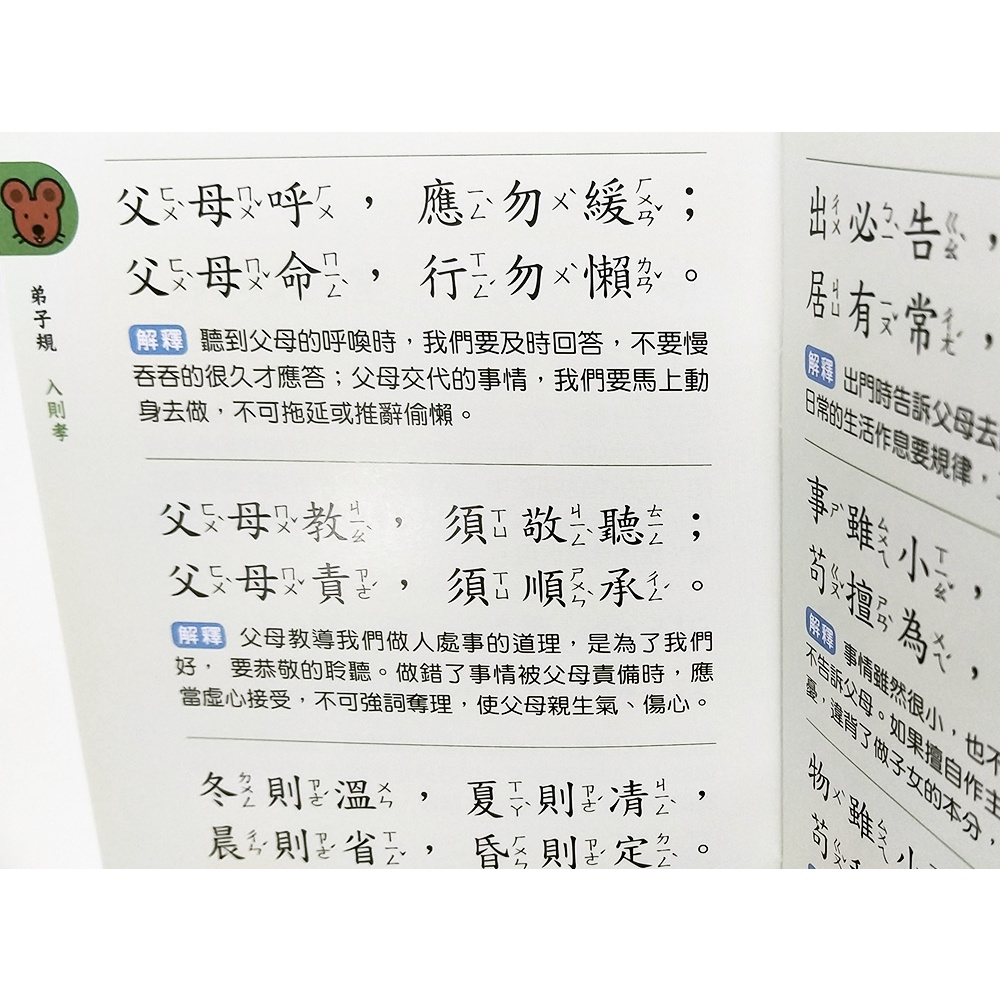 弟子規 入則孝
父ㄈㄨˋ母ㄇㄨˇ呼ㄏㄨ，應ㄧㄥˋ勿ㄨˋ緩ㄏㄨㄢˇ；
父ㄈㄨˋ母ㄇㄨˇ命ㄇㄧㄥˋ，行ㄒㄧㄥˊ勿ㄨˋ懶ㄌㄢˇ。
解釋 聽到父母的呼喚時，我們要及時回答，不要慢
吞吞的很久才應答；父母交代的事情，我們要馬上動
身去做，不可拖延或推辭偷懶。
父ㄈㄨˋ母ㄇㄨˇ教ㄐㄧㄠˋ，須ㄒㄩ敬ㄐㄧㄥˋ聽ㄊㄧㄥ；
父ㄈㄨˋ母ㄇㄨˇ責ㄗㄜˊ，須ㄒㄩ順ㄕㄨㄣˋ承ㄔㄥˊ。
解釋 父母教導我們做人處事的道理，是為了我們
好，要恭敬的聆聽。做錯了事情被父母責備時，應
當虛心接受，不可強詞奪理，使父母親生氣、傷心。
冬ㄉㄨㄥ則ㄗㄜˊ溫ㄨㄣ，夏ㄒㄧㄚˋ則ㄗㄜˊ凊ㄐㄧㄥˋ，
晨ㄔㄣˊ則ㄗㄜˊ省ㄒㄧㄥˇ，昏ㄏㄨㄣ則ㄗㄜˊ定ㄉㄧㄥˋ。
出ㄔㄨ必ㄅㄧˋ告ㄍㄠˋ，
居ㄐㄩ有ㄧㄡˇ常ㄔㄤˊ，
解釋 出門時告訴父母去
日常的生活作息要規律，
事ㄕˋ雖ㄙㄨㄟ小ㄒㄧㄠˇ，
苟ㄍㄡˇ擅ㄕㄢˋ為ㄨㄟˊ，
解釋 事情雖然很小，也不
不告訴父母。如果擅自作主
憂，違背了做子女的本分，
物ㄨˋ雖ㄙㄨㄟ小
苟ㄍㄡˇ